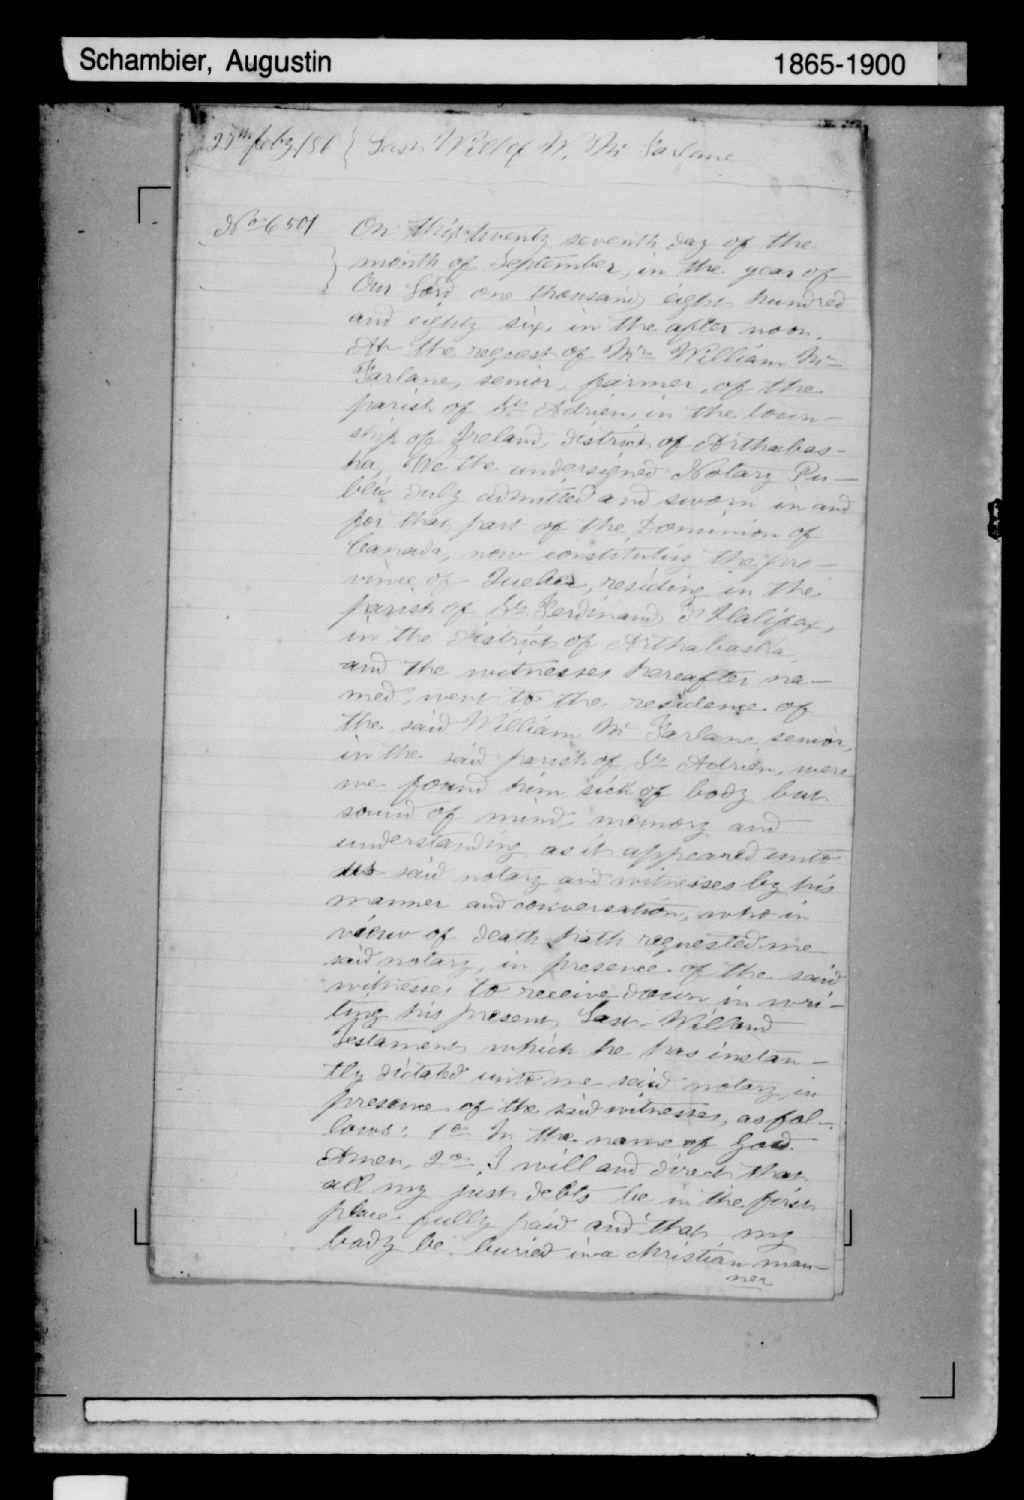 Schambier, Augustin
1865-1900
Last Will of W. Mc Farlane
No 6501
On this twenty seventh day of the
month of September, in the year of
Our Lord one thousand eight hundred
and eighty six, in the after noon.
At the request of Mr William Mc
Farlane, senior, farmer, of the
parish of St Adrien, in the town-
ship of Ireland, district of Arthabas-
ka, We the undersigned Notary Pu-
blic duly admitted and sworn in and
for that part of the Dominion of
Canada, now constituting the pro-
vince of Quebec, residing in the
parish of St Ferdinand d'Halifax,
in the district of Arthabaska,
and the witnesses hereafter na-
med, went to the residence of
the said William Mc Farlane senior,
in the said parish of St Adrien, were
we found him sick of body but
sound of mind memory and
understanding as it appeared unto
us said notary and witnesses by his
manner and conversation, who in
view of death hath requested me
said notary, in presence of the said
witnesses to receive down in wri-
ting his present Last Will and
Testament which he has instan-
tly dictated unto me said notary in
presence of the said witnesses, as fol-
lows: 1o In the name of God
Amen, 2o I will and direct that
all my just debts be in the first
place fully paid and that my
body be buried in a christian man-
ner